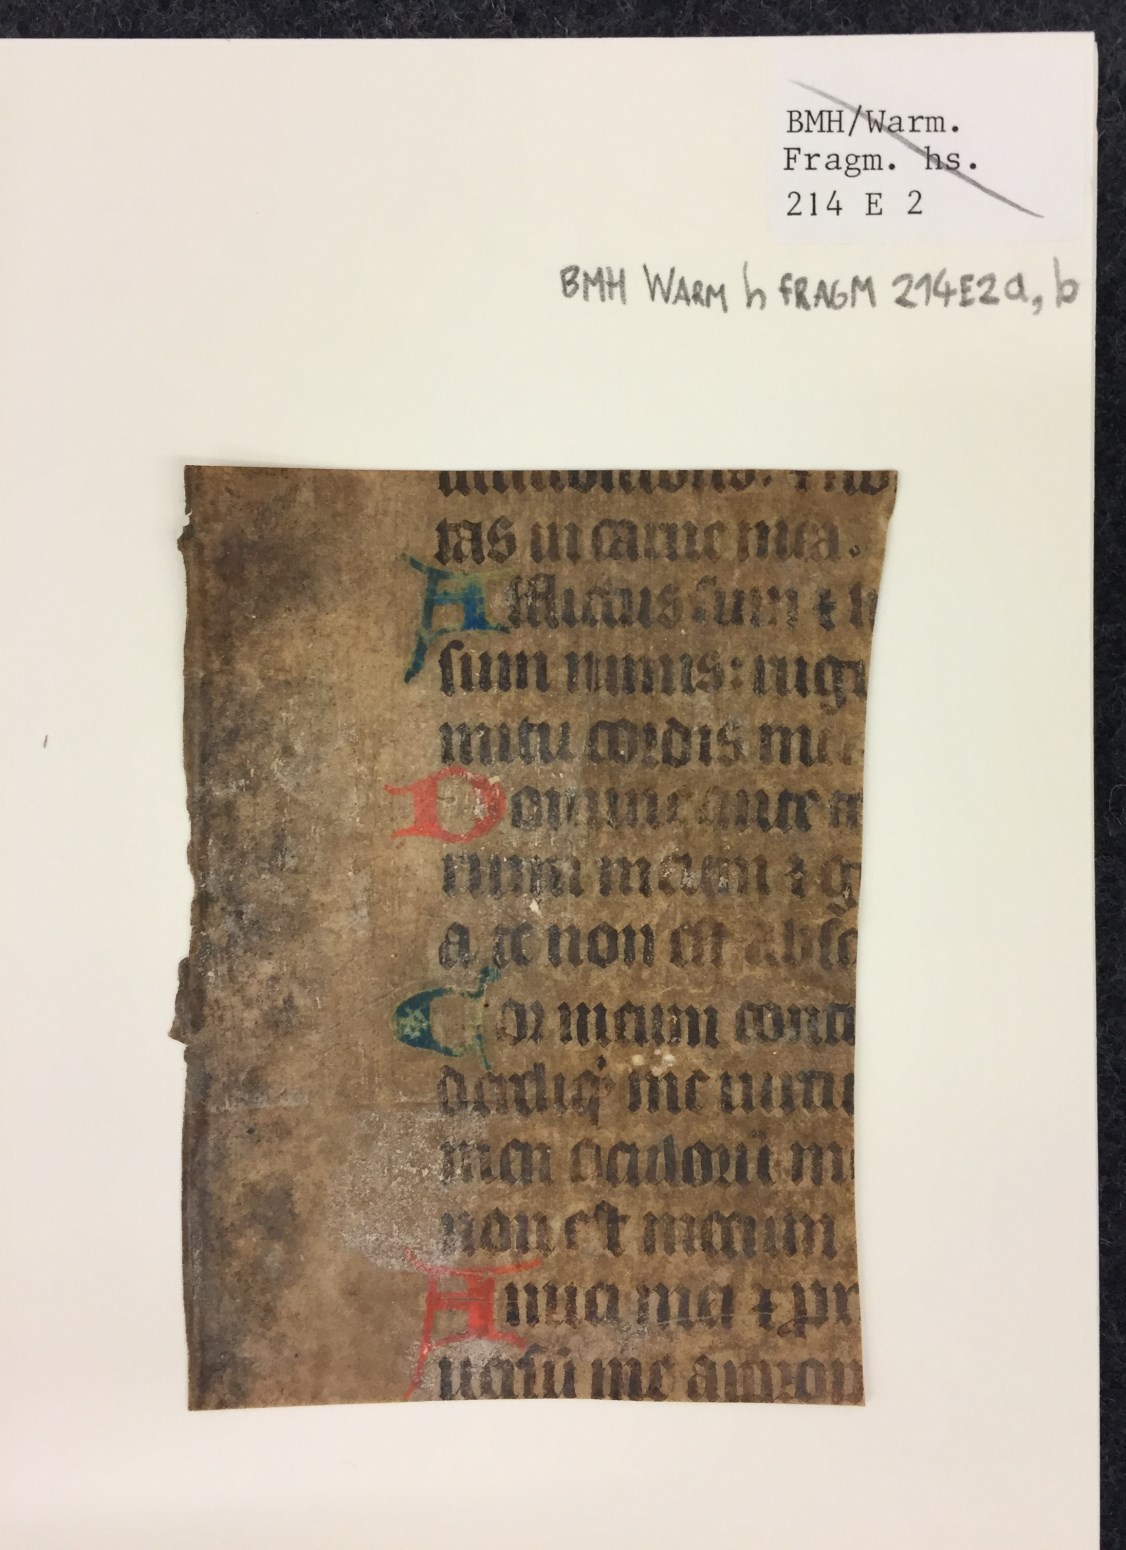 BMH/Warm.
Fragm. hs.
214 E 2
BMH WARM h FRAGM 214E2a, b
tas in carne mea.
Afflictus sum ⁊ h
sum nimis: rugi
mitu cordis mei.
Domine ante
rium meum ⁊ g
a te non est absc
Cor meum contu
me uirtu
men oculorū m
non est mecum
Amici mei ⁊ pr
me aduer